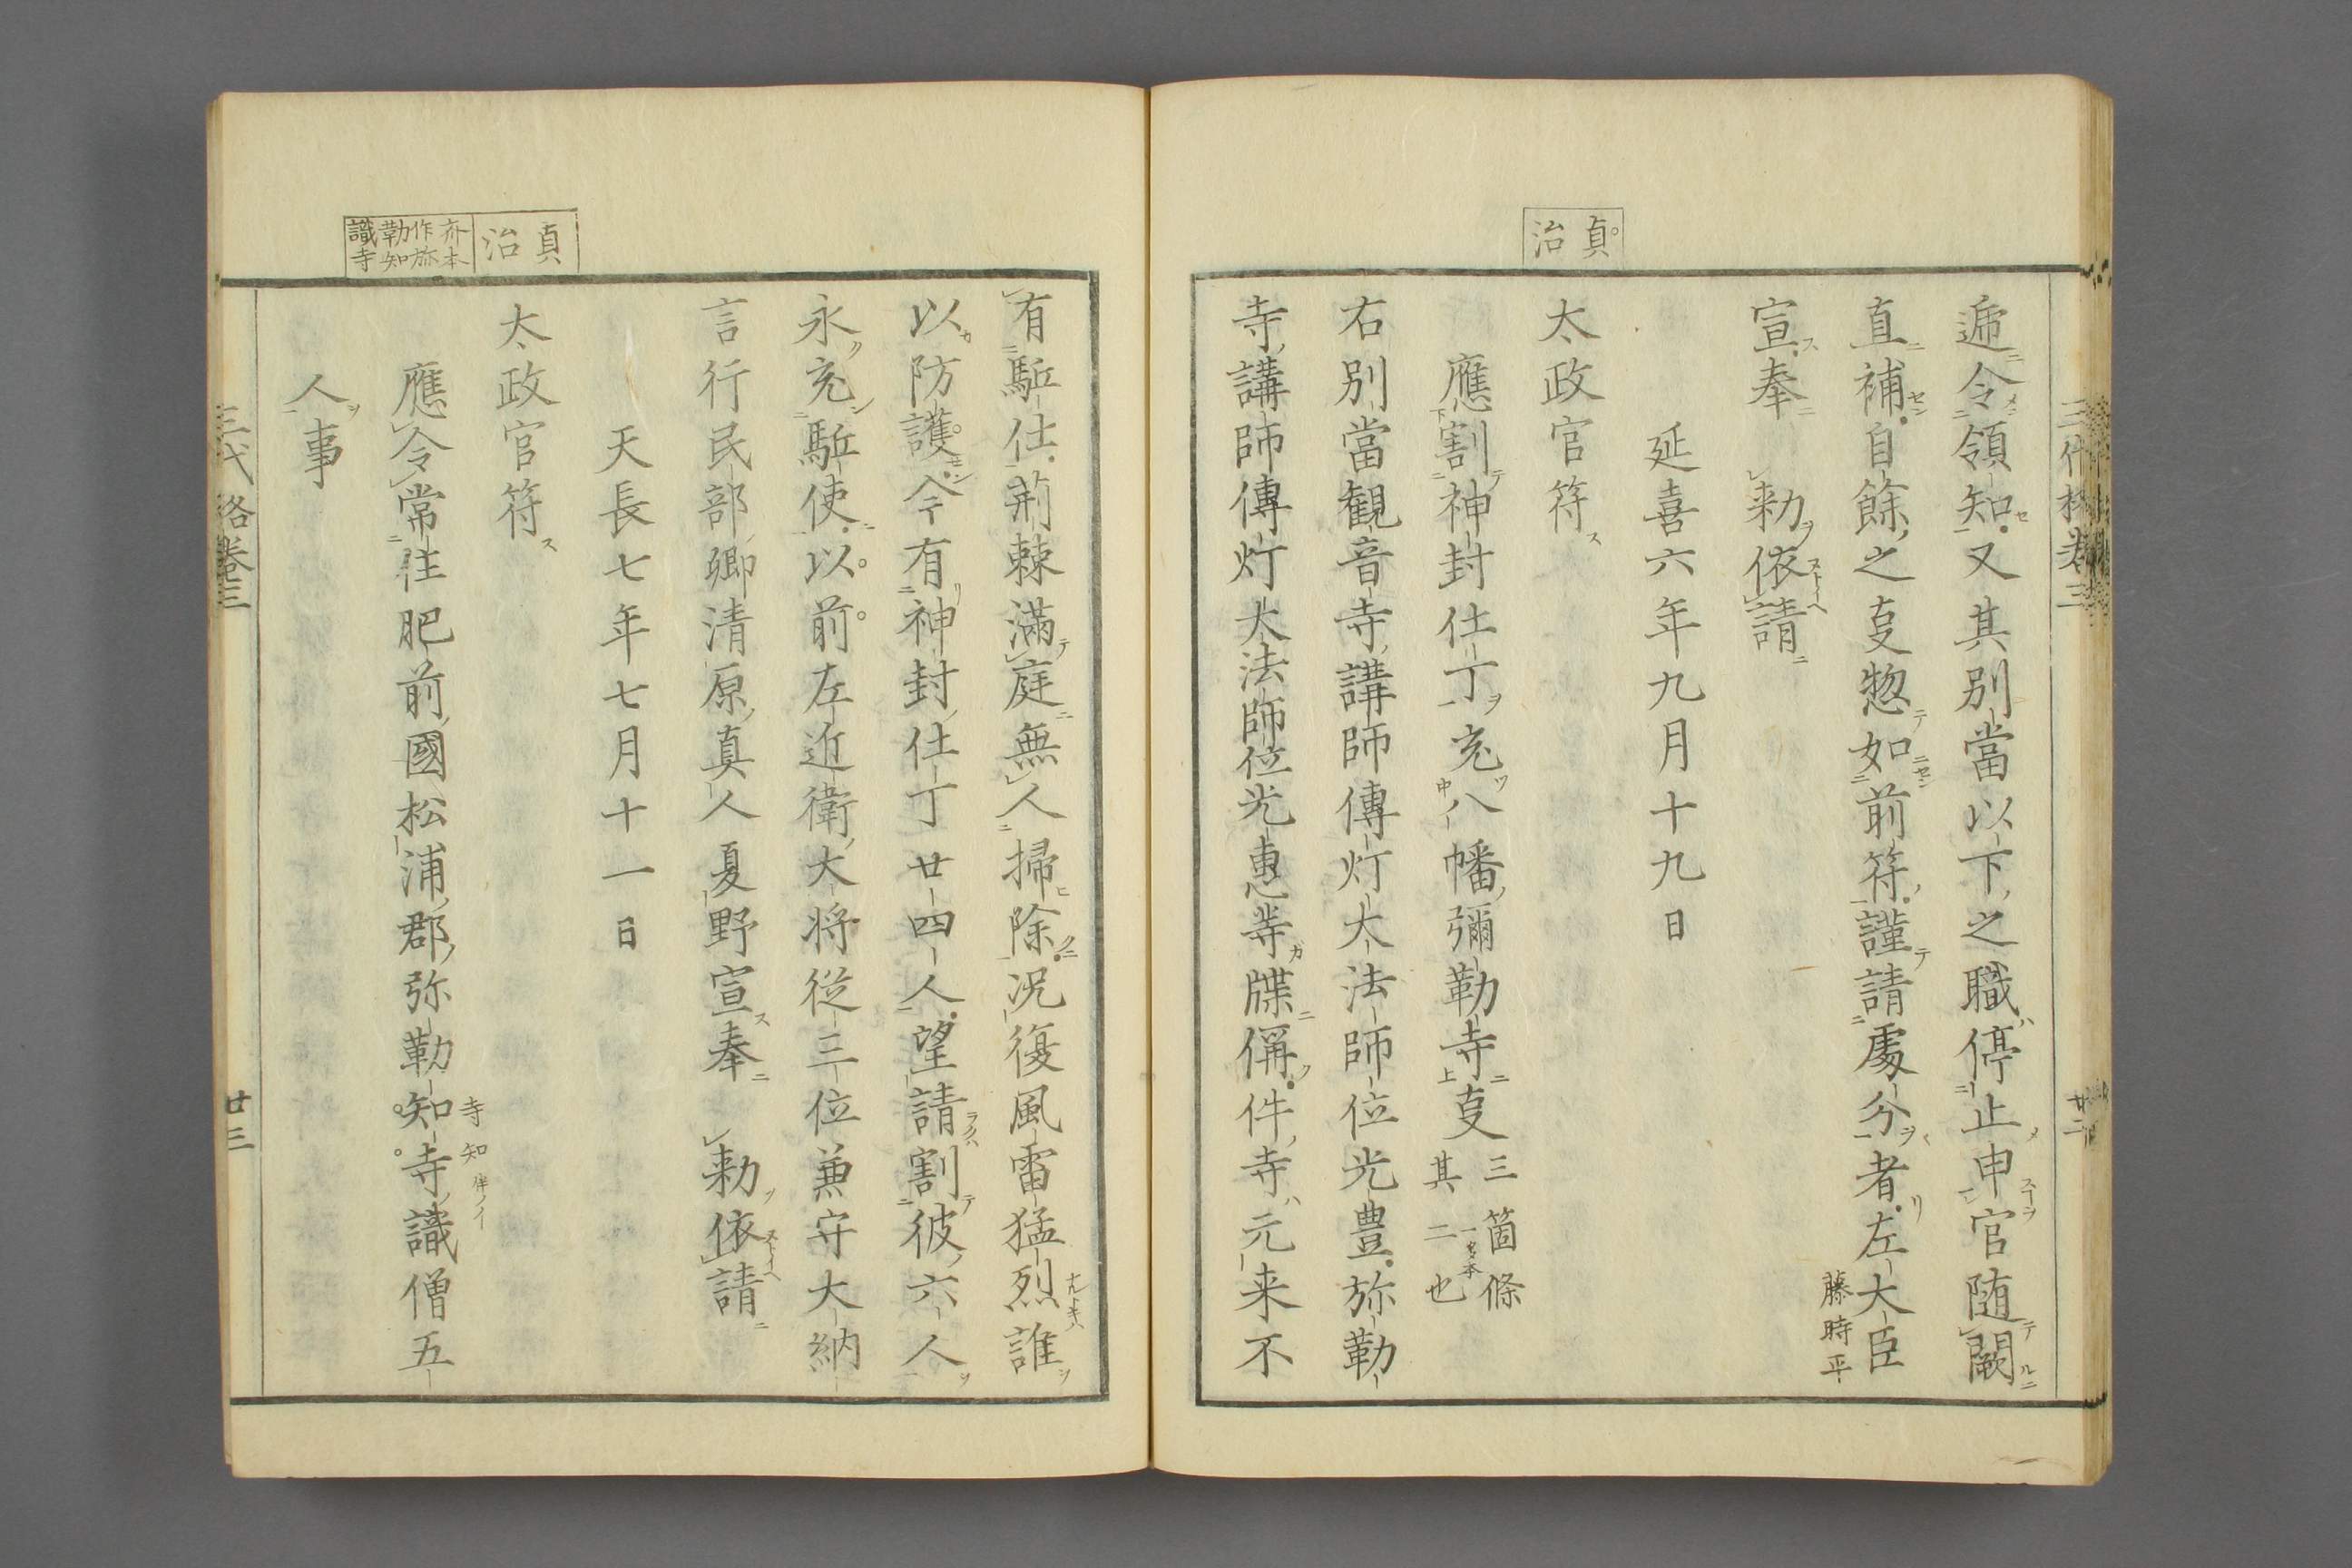 貞治
遞令領知又其別當以下之職停止申官随闕
直補自餘之㕝惣如前符謹請處分者左大臣
藤時平
宣奉　勅依請
延喜六年九月十九日
太政官符
應割神封仕丁充八幡彌勒寺㕝三箇條其二也
右別當観音寺講師傳灯大法師位光豊弥勒
寺講師傳灯大法師位光惠等牒偁件寺元来不
貞治
亦本作旅勒知識寺
有駈仕荊棘滿庭無人掃除况復風雷猛烈誰
以防護今有神封仕丁廿四人望請割彼六人
永充駈使以前左近衛大将從三位兼守大納
言行民部卿清原真人夏野宣奉　勅依請
天長七年七月十一日
太政官符
應令常住肥前國松浦郡弥勒知寺識僧五
寺知
人事
三代格卷三
廿三